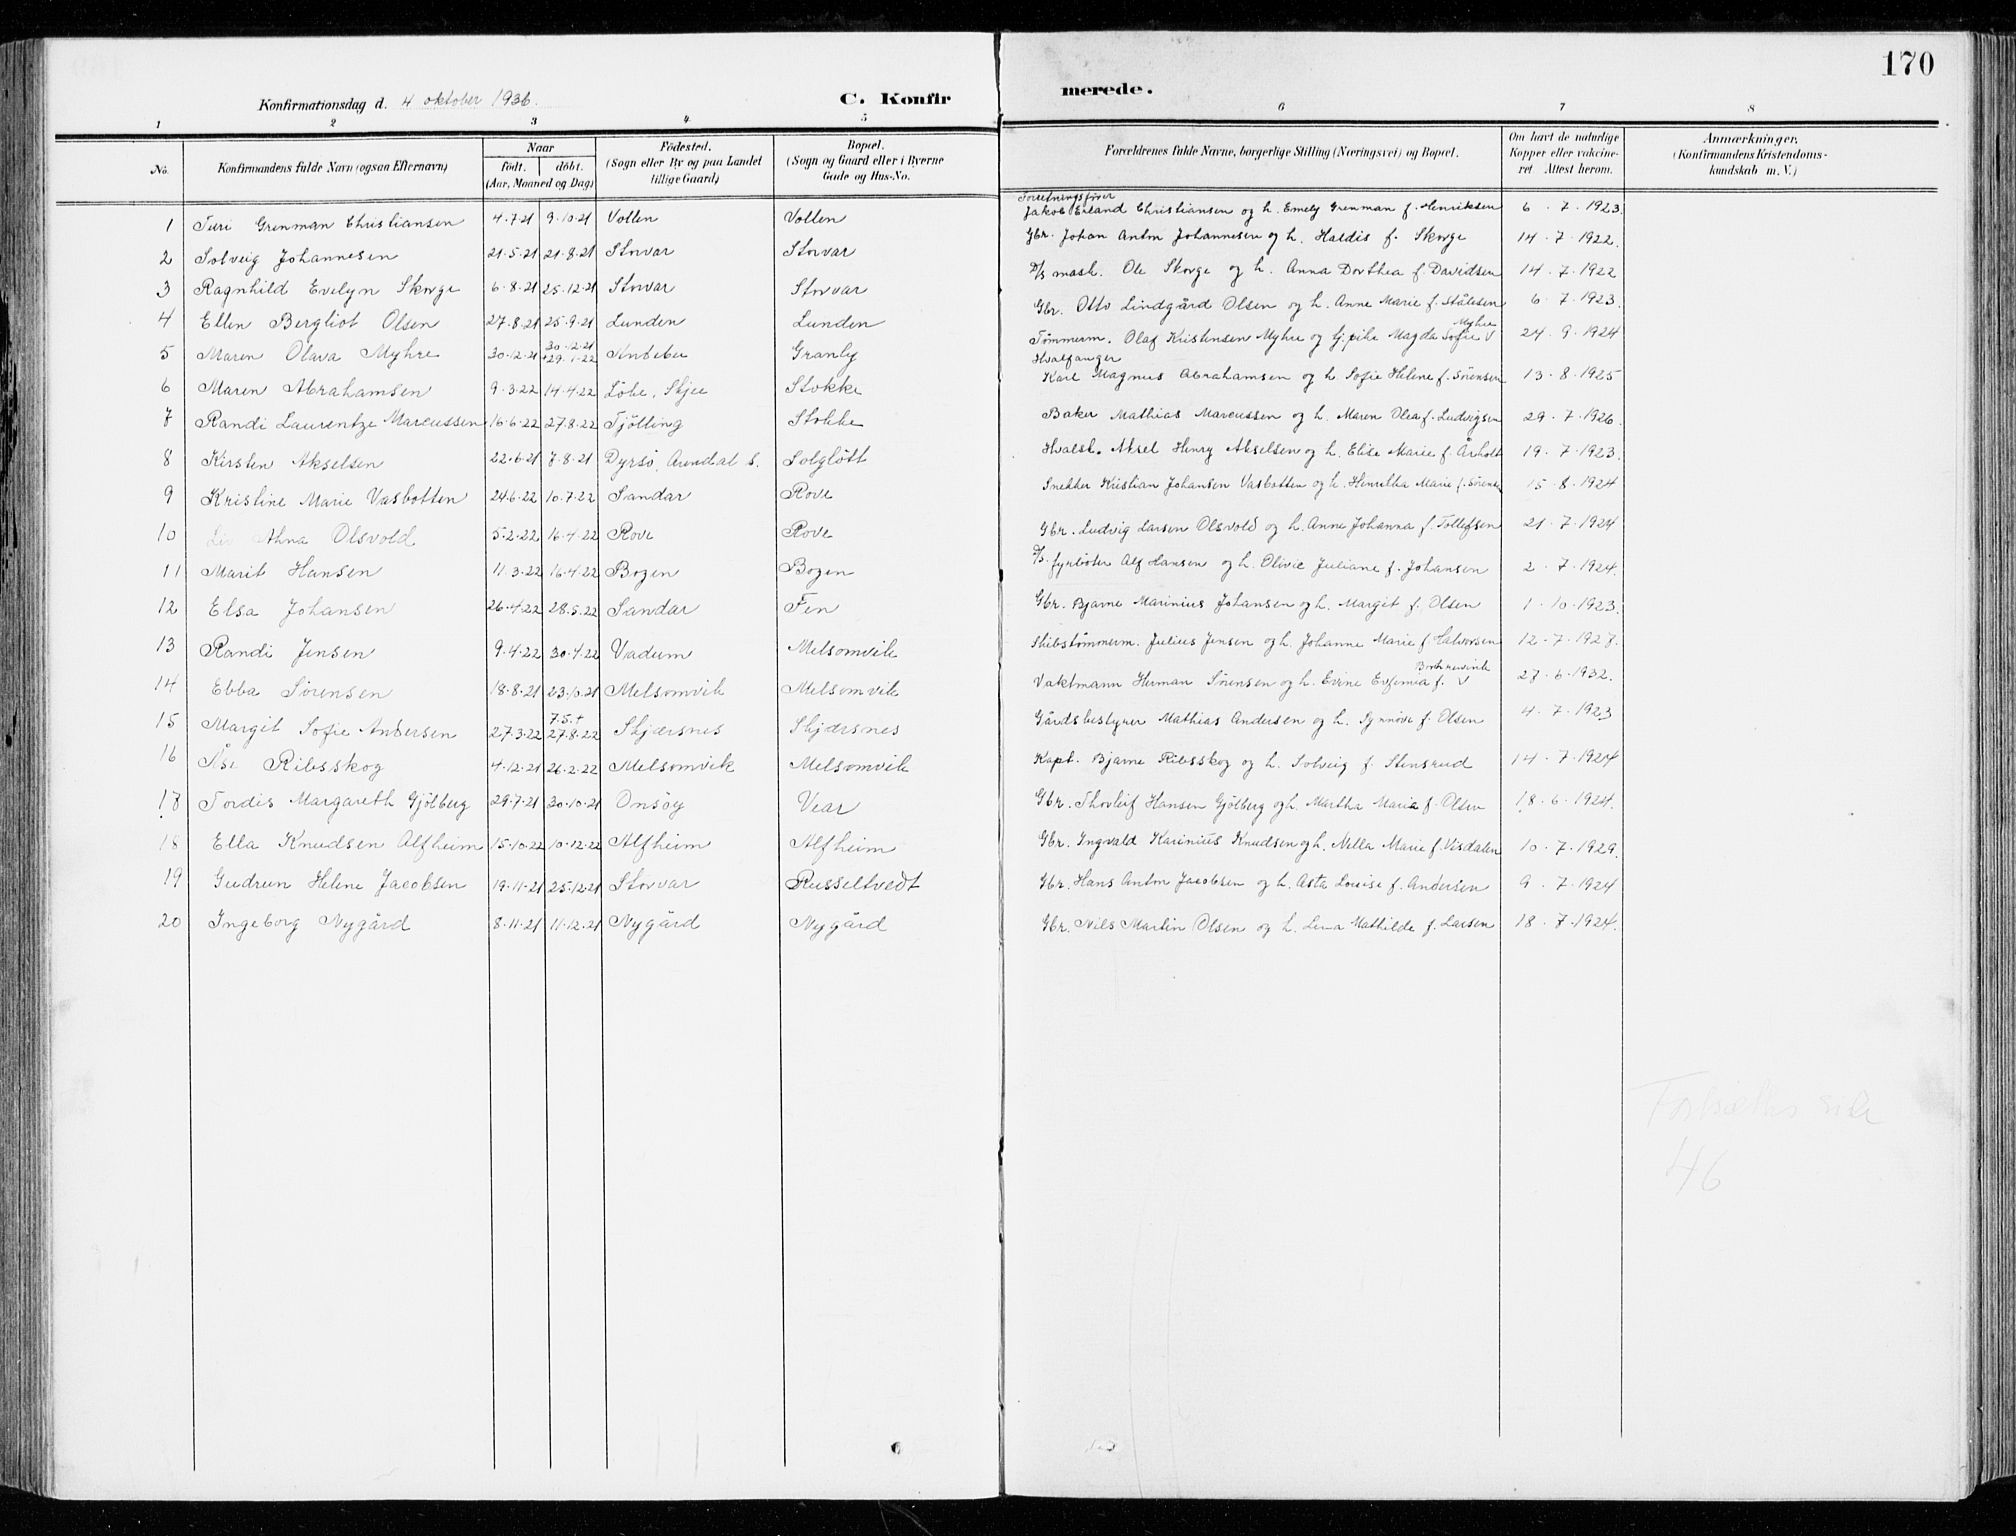 170
Konfirmationsdag d. 4 oktober 1936. C. Konfirmerede.
1 2 3 4 5 6 7 8
No. Konfirmandens fulde Navn (ogsaa Efternavn) Naar født. døbt. (Aar, Maaned og Dag) Fødested. (Sogn eller By og paa Landet tillige Gaard) Bopæl. (Sogn og Gaard eller i Byerne Gade og Hus-No. Forældrenes fulde Navne, borgerlige Stilling (Næringsvei) og Bopæl. Om havt de naturlige Kopper eller vaccineret Attest herom. Anmærkninger. (Konfirmandens Kristendomskundskab m. V.)
1 Turi Grenman Christiansen 4.7.21 9.10.21 Vollen Vollen Forretningsfører Jakob Erland Christiansen og h. Emely Grenman f. Henriksen 6.7.1923.
2 Solveig Johannesen 21.5.21 21.8.21 Storvar Storvar Gbr. Johan Anton Johannesen og h. Haldis f. Skorge 14.7.1922.
3 Ragnhild Evelyn Skorge 6.8.21 25.12.21 Storvar Storvar D/S mask. Ole Skorge og h. Anna Dorthea f. Davidsen 14.7.1922
4 Ellen Bergliot Olsen 27.8.21 25.9.21 Lunden Lunden Gbr. Otto Lindgård Olsen og h. Anne Marie f. Stålesen 6.7.1923.
5 Maren Olava Myhre 30.12.21 30.12.21 + 29.1.22 Andebu Granly Tömmerm. Olaf Kristensen Myhre og tj.pike Magda Sofie Myhre 24.9.1924
6 Maren Abrahamsen 9.3.22 14.4.22 Löke, Skjee Stokke Hvalfanger Karl Magnus Abrahamsen og h. Sofie Helene f. Sörensen 13.8.1925
7 Randi Laurentze Marcussen 16.6.22 27.8.22 Tjölling Stokke Baker Mathias Marcussen og h. Maren Olea f. Ludvigsen 29.7.1926.
8 Kirsten Akselsen 22.6.21 7.8.21 Dyrsö, Arendal s. Solgløtt Hvalsk. Aksel Henry Akselsen og h. Elise Marie f. Årholt 19.7.1923.
9 Kristine Marie Vasbotten 24.6.22 10.7.22 Sandar Rove Snekker Kristian Johansen Vasbotten og h. Henritha Marie f. Sörensen 15.8.1924
10 Liv Ahna Olsvold 5.2.22 16.4.22 Rove Rove Gbr. Ludvig Larsen Olsvold og h. Anne Johanna f. Tollefsen 21.7.1924
11 Marit Hansen 11.3.22 16.4.22 Bogen Bogen D/S. fyrböter Alf Hansen og h. Olivie Juliane f. Johansen 2.7.1924.
12 Elsa Johansen 26.4.22 28.5.22 Sandar Fen Gbr. Bjarne Marinius Johansen og h. Margit f. Olsen 1.10.1923.
13 Randi Jensen 9.4.22 30.4.22 Vadum Melsomvik Skibstömmerm. Julius Jensen og h. Johanne Marie f. Halvorsen 12.7.1927.
14 Ebba Sörensen 18.8.21 23.10.21 Melsomvik Melsomvik Vaktmann Herman Sörensen og h. Evine Eufemia f. 27.6.1932.
15 Margit Sofie Andersen 27.3.22 7.5.+ 27.8.22 Skjærsnes Skjærsnes Gårdsbestyrer Mathias Andersen og h. Synnöve f. Olsen 4.7.1923
16 Åse Ribsskog 4.12.21 26.2.22 Melsomvik Melsomvik Kapt. Bjarne Ribsskog og h. Solveig f. Stensrud 14.7.1924
17 Tordis Margareth Gjölberg 29.7.21 30.10.21 Onsöy Vear Gbr. Thorleif Hansen Gjölberg og h. Martha Marie f. Olsen 18.6.1924.
18 Ella Knudsen Alfheim 15.10.22 10.12.22 Alfheim Alfheim Gbr. Ingvald Karinius Knudsen og h. Nella Marie f. Visdalen 10.7.1929.
19 Gudrun Helene Jacobsen 19.11.21 25.12.21 Storvar Russeltvedt Gbr. Hans Anton Jacobsen og h. Asta Louise f. Andersen 9.7.1924
20 Ingeborg Nygård 8.11.21 11.12.21 Nygård Nygård Gbr. Nils Martin Olsen og h. Lina Mathilde f. Larsen 18.7.1924.
Fortsættes side
46